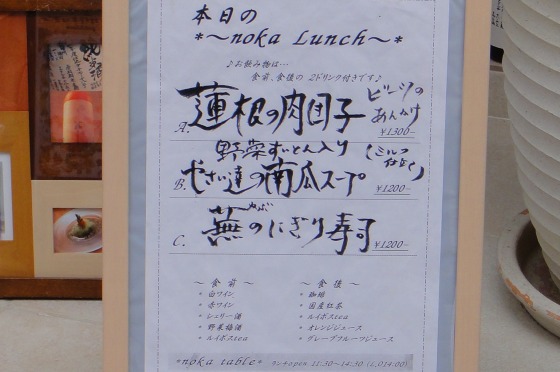 本日の
*～noka Lunch～*
♪お飲み物は…
食前、食後の 2ドリンク付きです♪
A. 蓮根の肉団子 ビーツのあんかけ ¥1300-
野菜すいとん入り
B. やさい達の南瓜スープ (ミルク仕立て) ¥1200-
かぶ
C. 蕪のにぎり寿司 ¥1200-
～ 食 前 ～ ～ 食 後 ～
* 白ワイン * 珈琲
* 赤ワイン * 国産紅茶
* シェリー酒 * ルイボスtea
* 野菜梅酒 * オレンジジュース
* ルイボスtea * グレープフルーツジュース
*noka table* ランチopen 11:30~14:30 (L.O14:00)